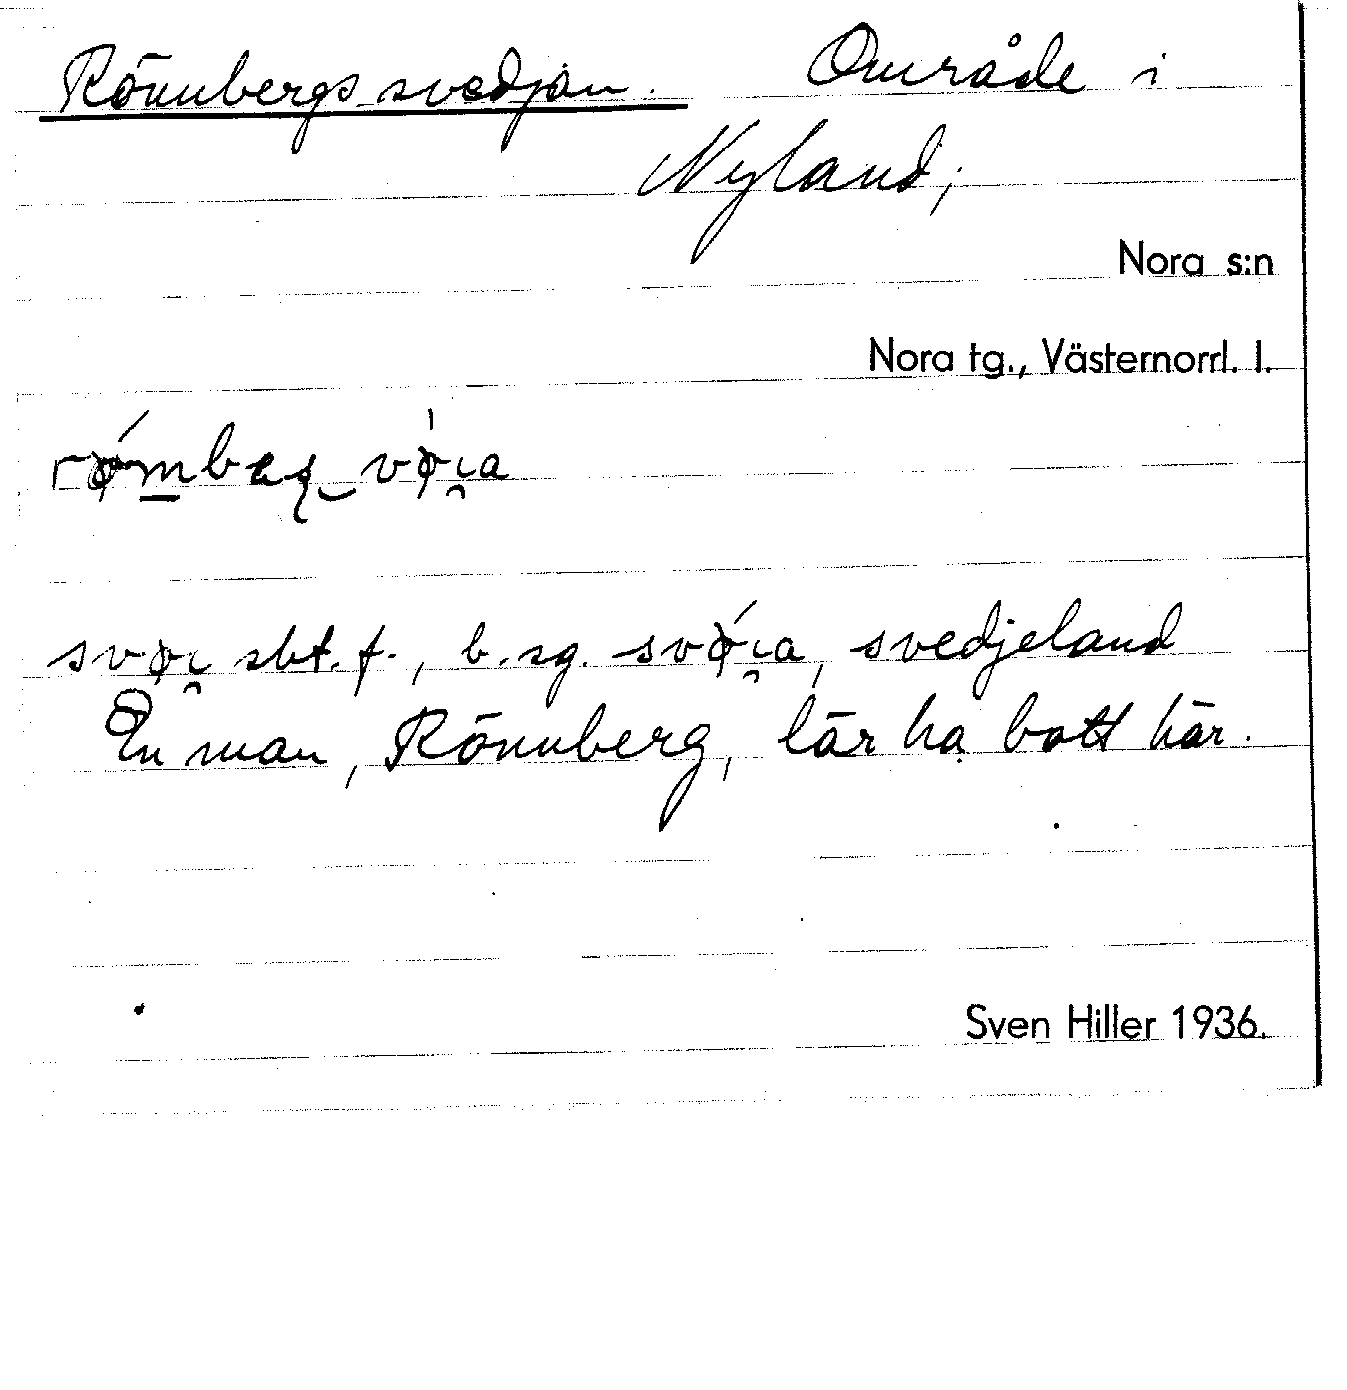 Rönnbergssvedjan. Område i
Nyland,
Nora s:n
Nora tg., Västernorrl. l.
sbt. f., b. sg. svedjeland
En man, Rönnberg, lär ha bott här.
Sven Hiller 1936.